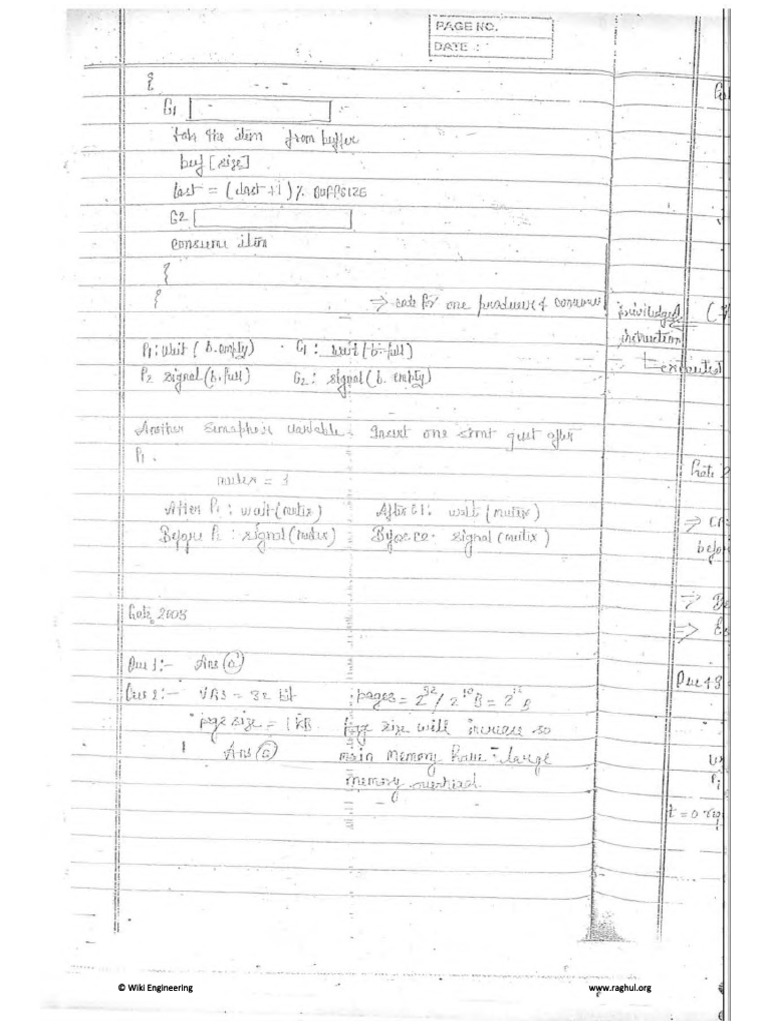 PAGE NO.
DATE :
{
C1
take the item from buffer
buf [size]
last = (last+1) % BUFFSIZE
C2
consume item
{
{
⇒ code for one producer & consumer
P1: wait ( b.empty) C1 : wait (b.full)
P2 signal (b.full) C2 : signal (b. empty)
Another semaphore variable. Insert one stmt just after
P1 .
mutex = 1
After P1 : wait (mutix) After C1 : wait (mutix)
Before P2 : signal (mutex) Before C2 : signal (mutix)
Gate 2008
Que 1:- Ans
Que 2:- VAS = 32 bit pages = 2^32 / 2^10 B =
page size = 1 KB. Page size will increase so
Ans main memory have large
memory overhead.
priviledged
instruction
executed
Gate 2
before
Que 43
t = 0
© Wiki Engineering
www.raghul.org